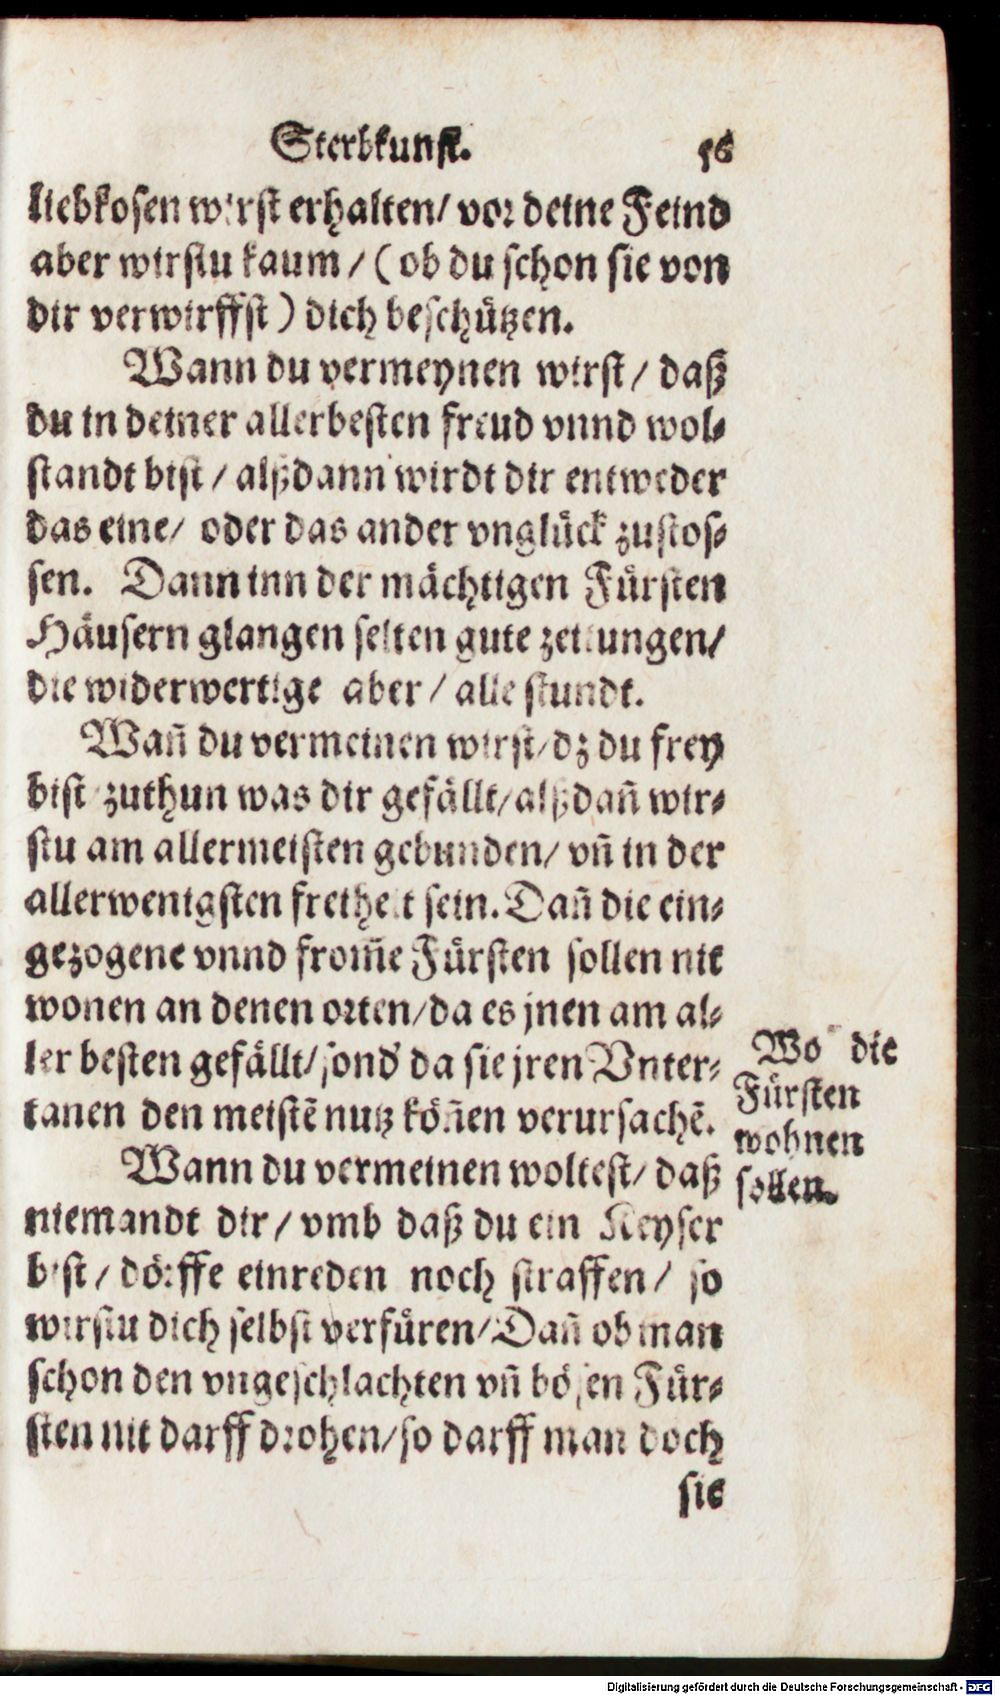 Sterbkunst. 56
liebkosen wirst erhalten/ vor deine Feind
aber wirstu kaum / ( ob du schon sie von
dir verwirffst ) dich beschützen.
Wann du vermeynen wirst / daß
du in deiner allerbesten freud vnnd wol-
standt bist / alßdann wirdt dir entweder
das eine/ oder das ander vnglück zustos-
sen. Dann inn der mächtigen Fürsten
Häusern glangen selten gute zeitungen/
die widerwertige aber / alle stundt.
Wañ du vermeinen wirst/ dz du frey
bist zuthun was dir gefällt/ alßdañ wir-
stu am allermeisten gebunden/ vñ in der
allerwenigsten freiheit sein. Dañ die ein-
gezogene vnnd from̃e Fürsten sollen nit
wonen an denen orten/ da es jnen am al-
ler besten gefällt/ sond' da sie jren Vnter-
tanen den meistẽ nutz köñen verursachẽ.
Wo die
Fürsten
wohnen
sollen.
Wann du vermeinen woltest/ daß
niemandt dir / vmb daß du ein Keyser
bist / dörffe einreden noch straffen / so
wirstu dich selbst verfüren/ Dañ ob man
schon den vngeschlachten vñ bösen Für-
sten nit darff drohen/ so darff man doch
sie
Digitalisierung gefördert durch die Deutsche Forschungsgemeinschaft - DFG